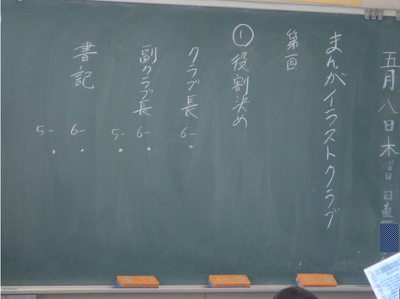 五月八日木曜日直
まんがイラストクラブ
第一回
①役割決め
クラブ長 6-
副クラブ長 6- 5-
書記 6- 5-